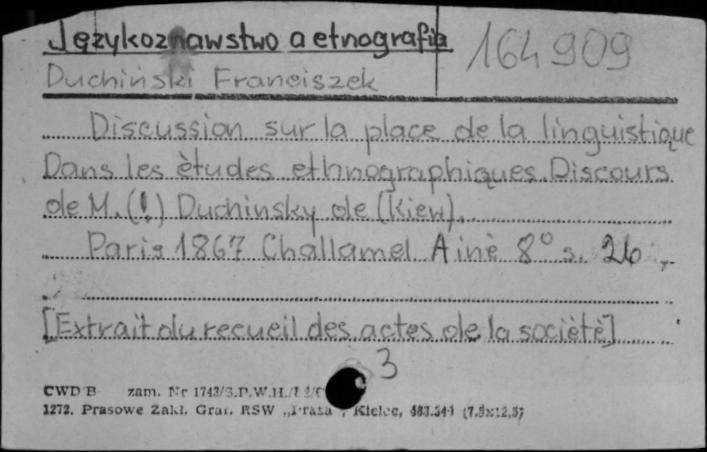 Językoznawstwo a etnografia
164909
Duchiński Franciszek
Discussion sur la place de la linguistique
Dans les ètudes ethnographiques. Discours
de M. (!) Duchinsky de (Kiew).
Paris 1867 Challamel Ainè 8° s. 26.
[Extrait du recueil des actes de la sociètè]
3
CWD B zam. Nr 1743/S.P.W.H.
1272. Prasowe Zakł. Graf. RSW „Prasa", Kielce,